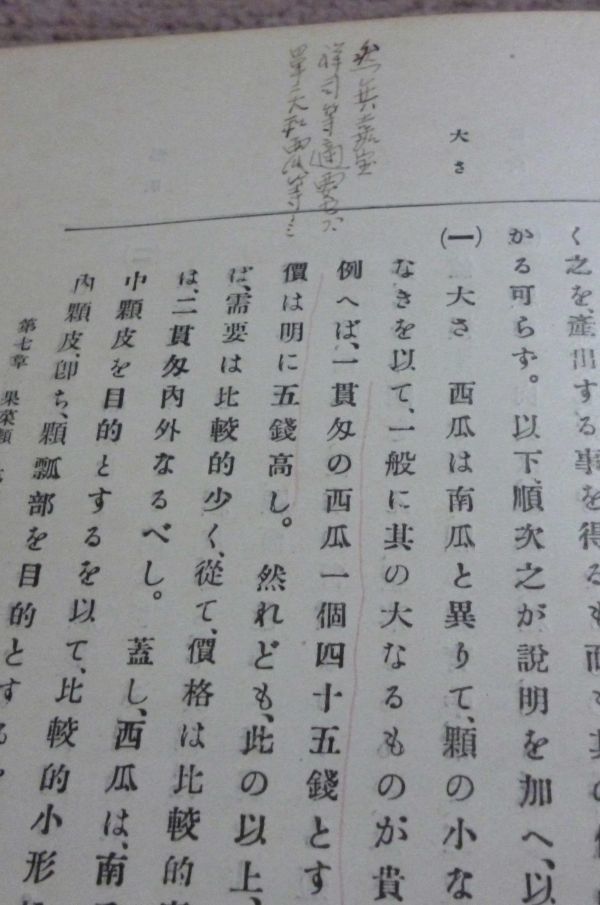 大さ
く之を、産出する事を得るも而も其の
かる可らず。以下、順次之が說明を加へ、以
(一) 大さ 西瓜は南瓜と異りて、顆の小な
なきを以て、一般に其の大なるものが貴
例へば、一貫匁の西瓜一個四十五錢とす
價は明に五錢高し。然れども、此の以上、
ば、需要は比較的少く、從て、價格は比較的
は、二貫匁內外なるべし。蓋し、西瓜は、南
中顆皮を目的とするを以て、比較的小形
內顆皮、卽ち、顆瓤部を目的とする
第七章 果菜類